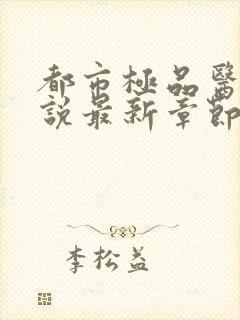 都市極品醫
說最新章節
李松益